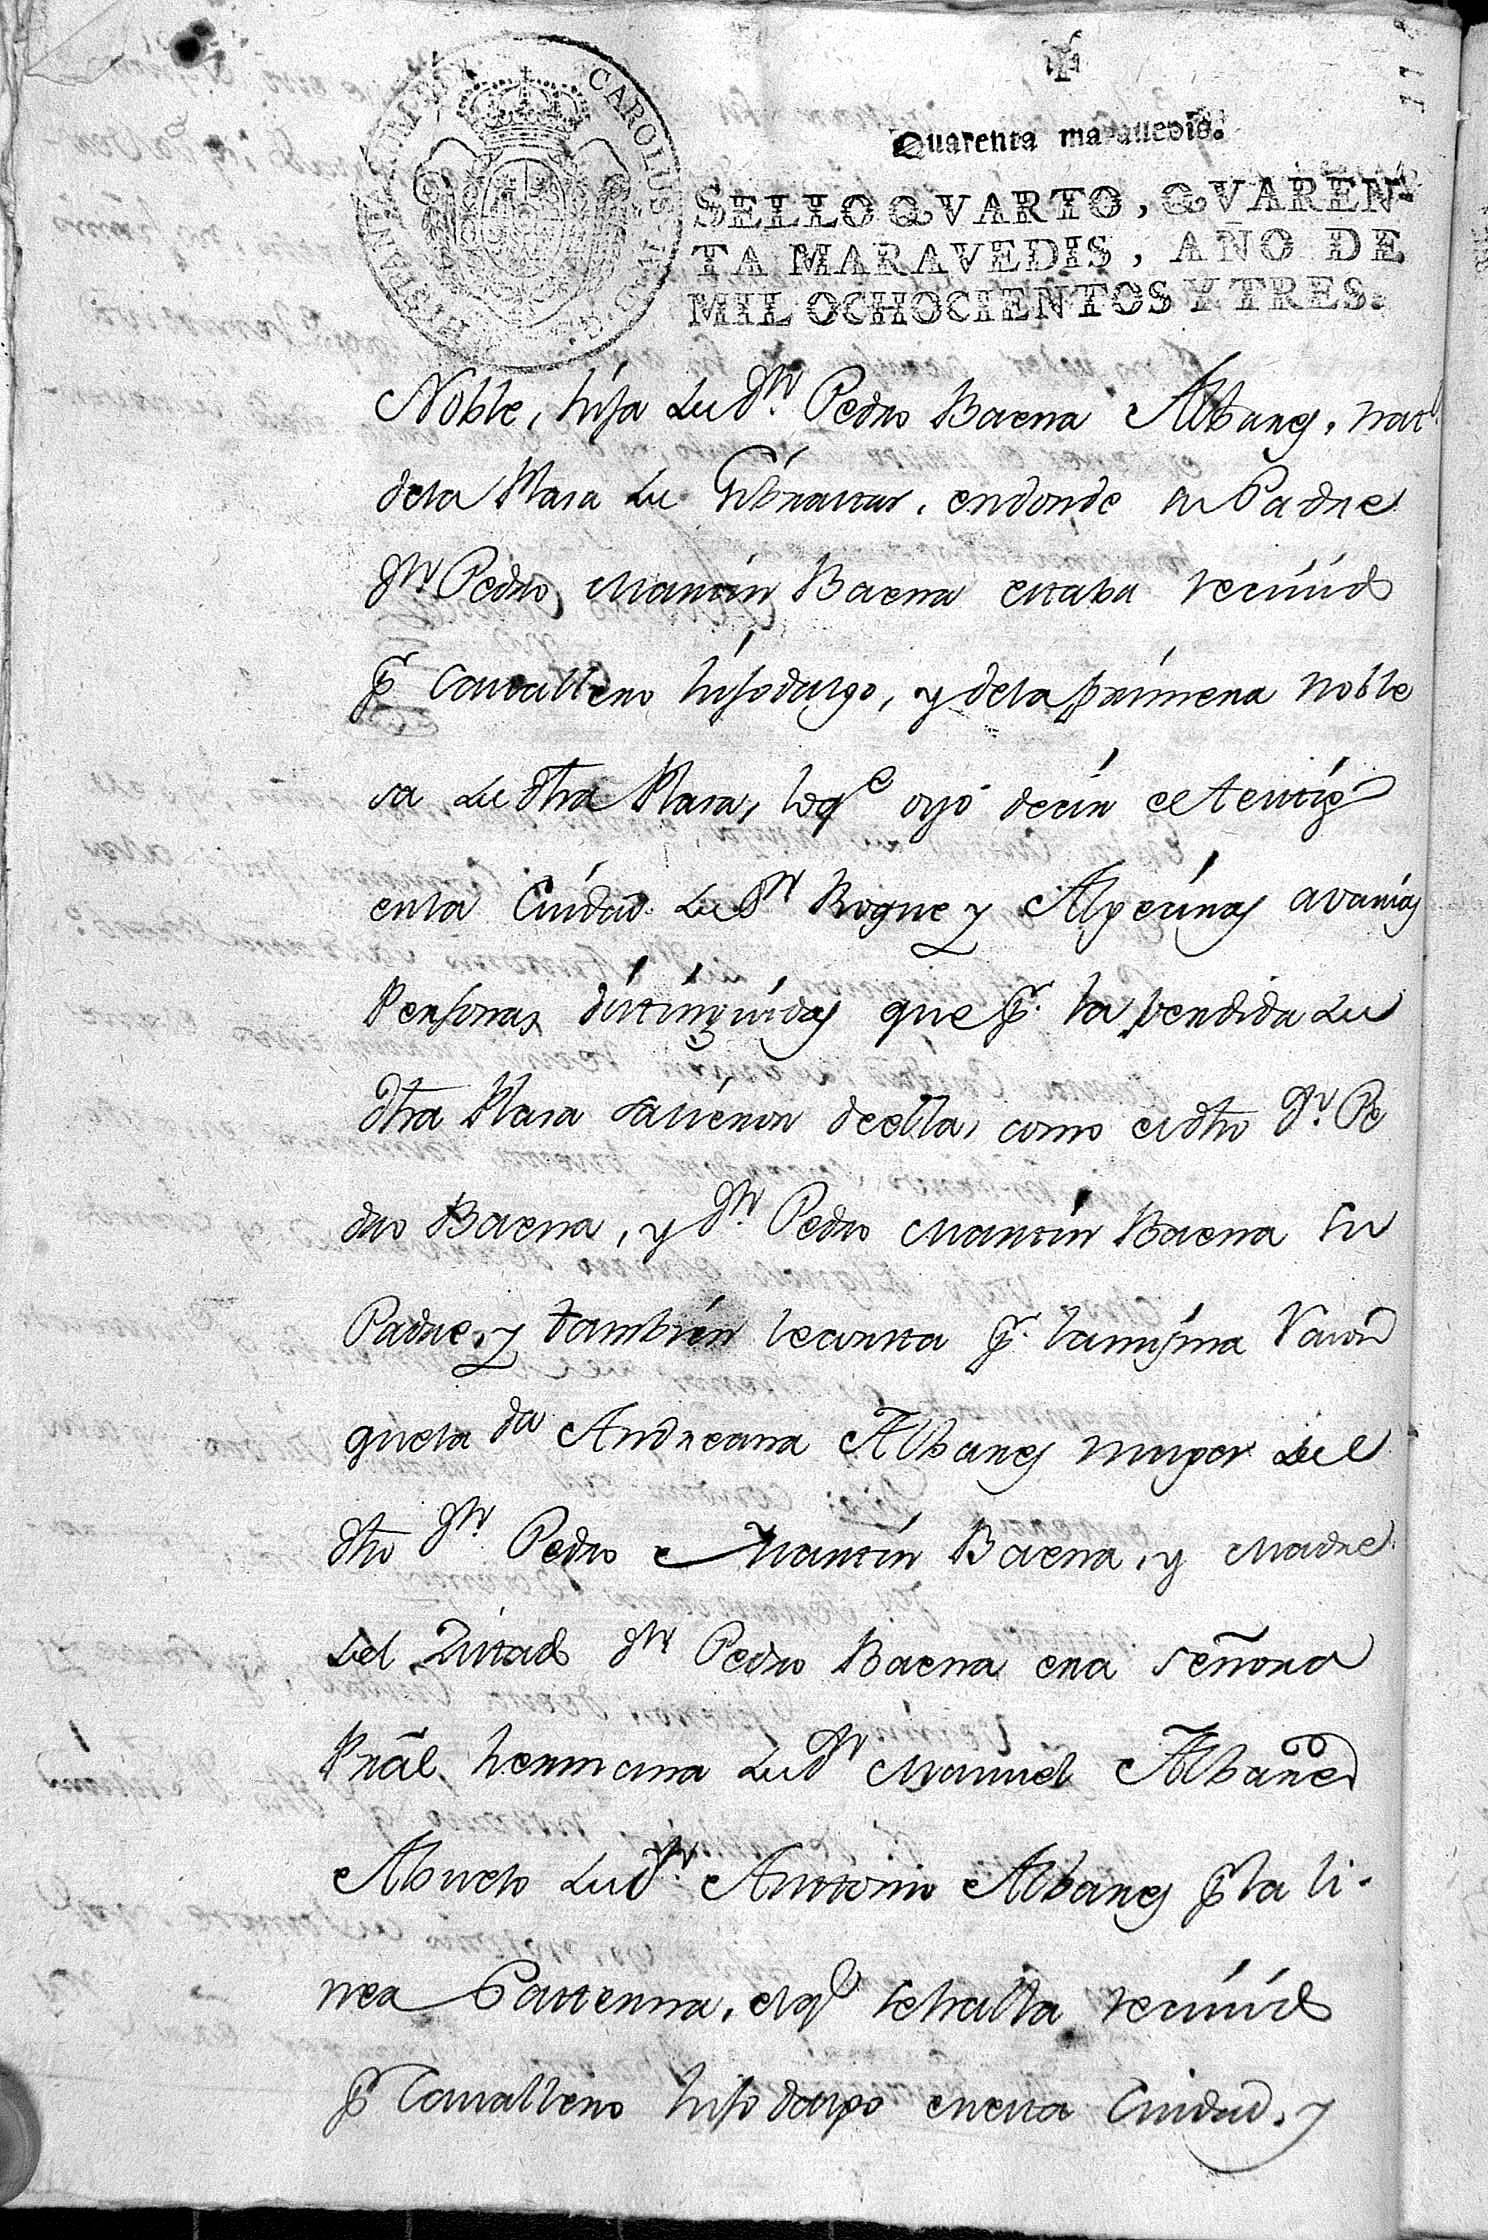 CAROLUS IV D. G. HISPANIAR
Quarenta maravedis.
SELLO QVARTO, QVAREN-
TA MARAVEDIS, AÑO DE
MIL OCHOCIENTOS Y TRES.
Noble, hija de Dn. Pedro Baena Albanes, natl
dela Plasa de Gibraltar, endonde su Padre
Dn Pedro Martin Baena estaba recivido
pr Cavallero hijodalgo, y dela primera noble
sa de dha Plasa, loqe oyó decir el testigo
enla Ciudad de Sn Roque y Algeciras a varias
Personas distinguidas que pr. la perdida de
dha Plasa salieron deella, como el dho Dn. Pe
dro Baena, y Dn. Pedro Martin Baena su
Padre, y tambien leconsta pr. lamisma razon
quela Da Andreana Albanes muger del
dho Dn. Pedro Martin Baena, y Madre
del Zitado Dn Pedro Baena era señora
Prâl hermana de Dn Manuel Albanes
Abuelo de Dn. Antonio Albanes pr la li-
nea Paterna, elqe sehalla recivido
pr Cavallero hijodalgo enesta Ciudad, y